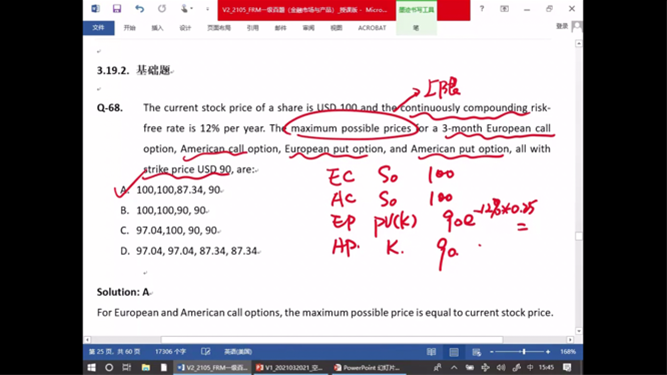 V2_2105_FRM一级百题（金融市场与产品）_授课版 - Micro...
墨迹书写工具
文件
开始
插入
设计
页面布局
引用
邮件
审阅
视图
ACROBAT
笔
登录
3.19.2. 基础题
上限
Q-68. The current stock price of a share is USD 100 and the continuously compounding risk-
free rate is 12% per year. The maximum possible prices for a 3-month European call
option, American call option, European put option, and American put option, all with
strike price USD 90, are:
A. 100,100,87.34, 90
B. 100,100,90, 90
C. 97.04,100, 90, 90
D. 97.04, 97.04, 87.34, 87.34
EC S₀ 100
AC S₀ 100
EP PV(K) 90e^-12%×0.25 =
AP. K. 90
Solution: A
For European and American call options, the maximum possible price is equal to current stock price.
第 25 页，共 60 页
17306 个字
英语(美国)
168%
V2_2105_FRM一级百...
V1_2021032021_空...
PowerPoint 幻灯片...
中
15:45